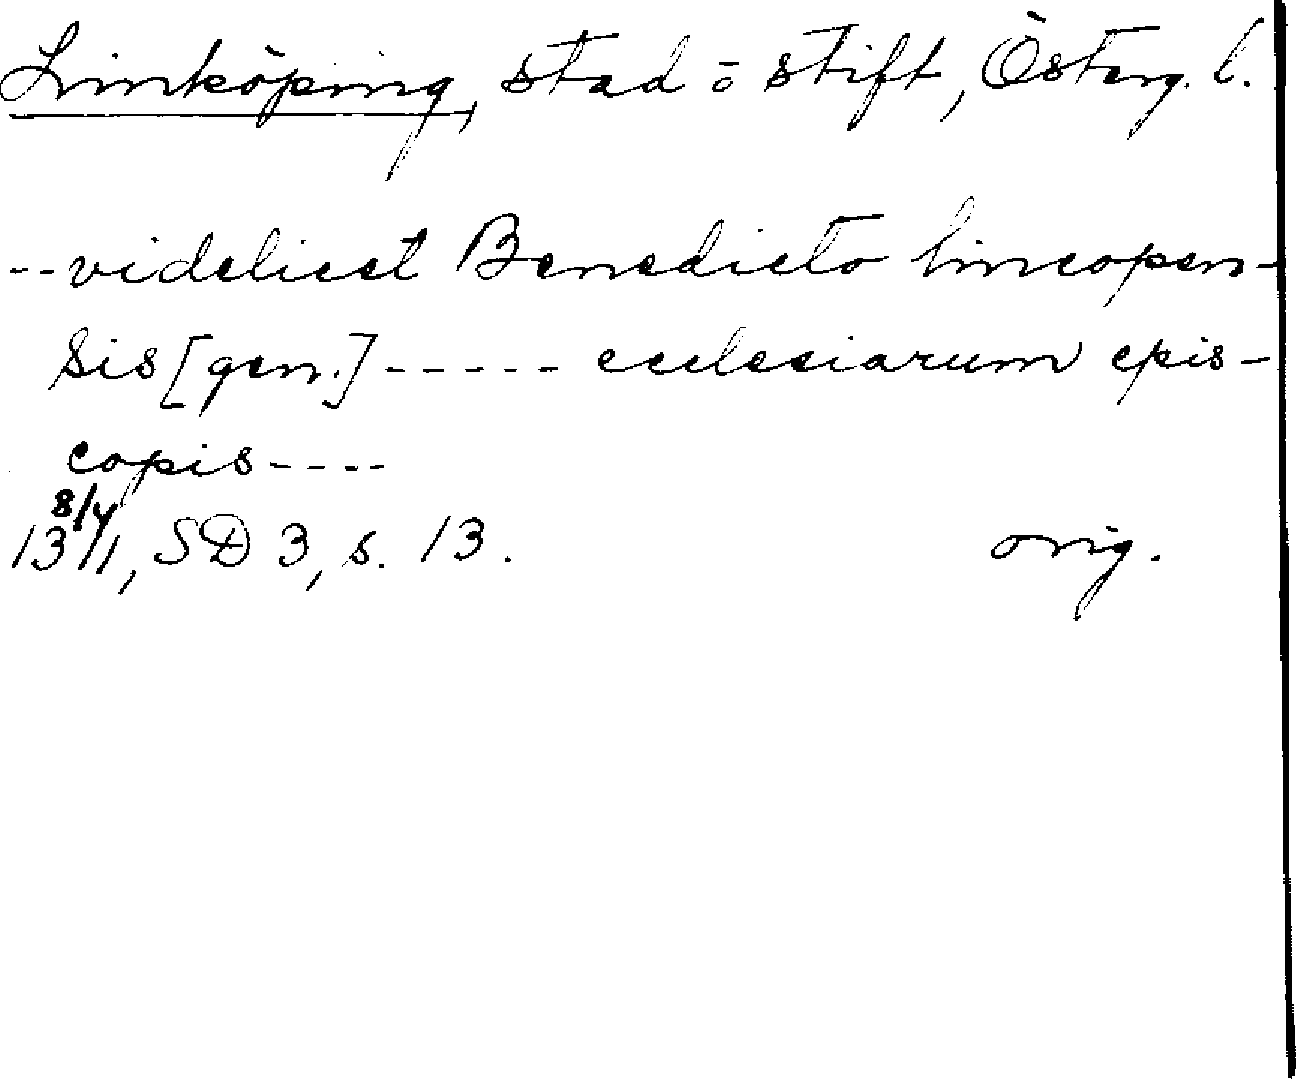 Linköping, stad o stift, Österg. l.
--videlicet Benedicto lincopen-
sis [gen.] ----- ecclesiarum epis-
copis----
8/4
1311, SD 3, s. 13. orig.